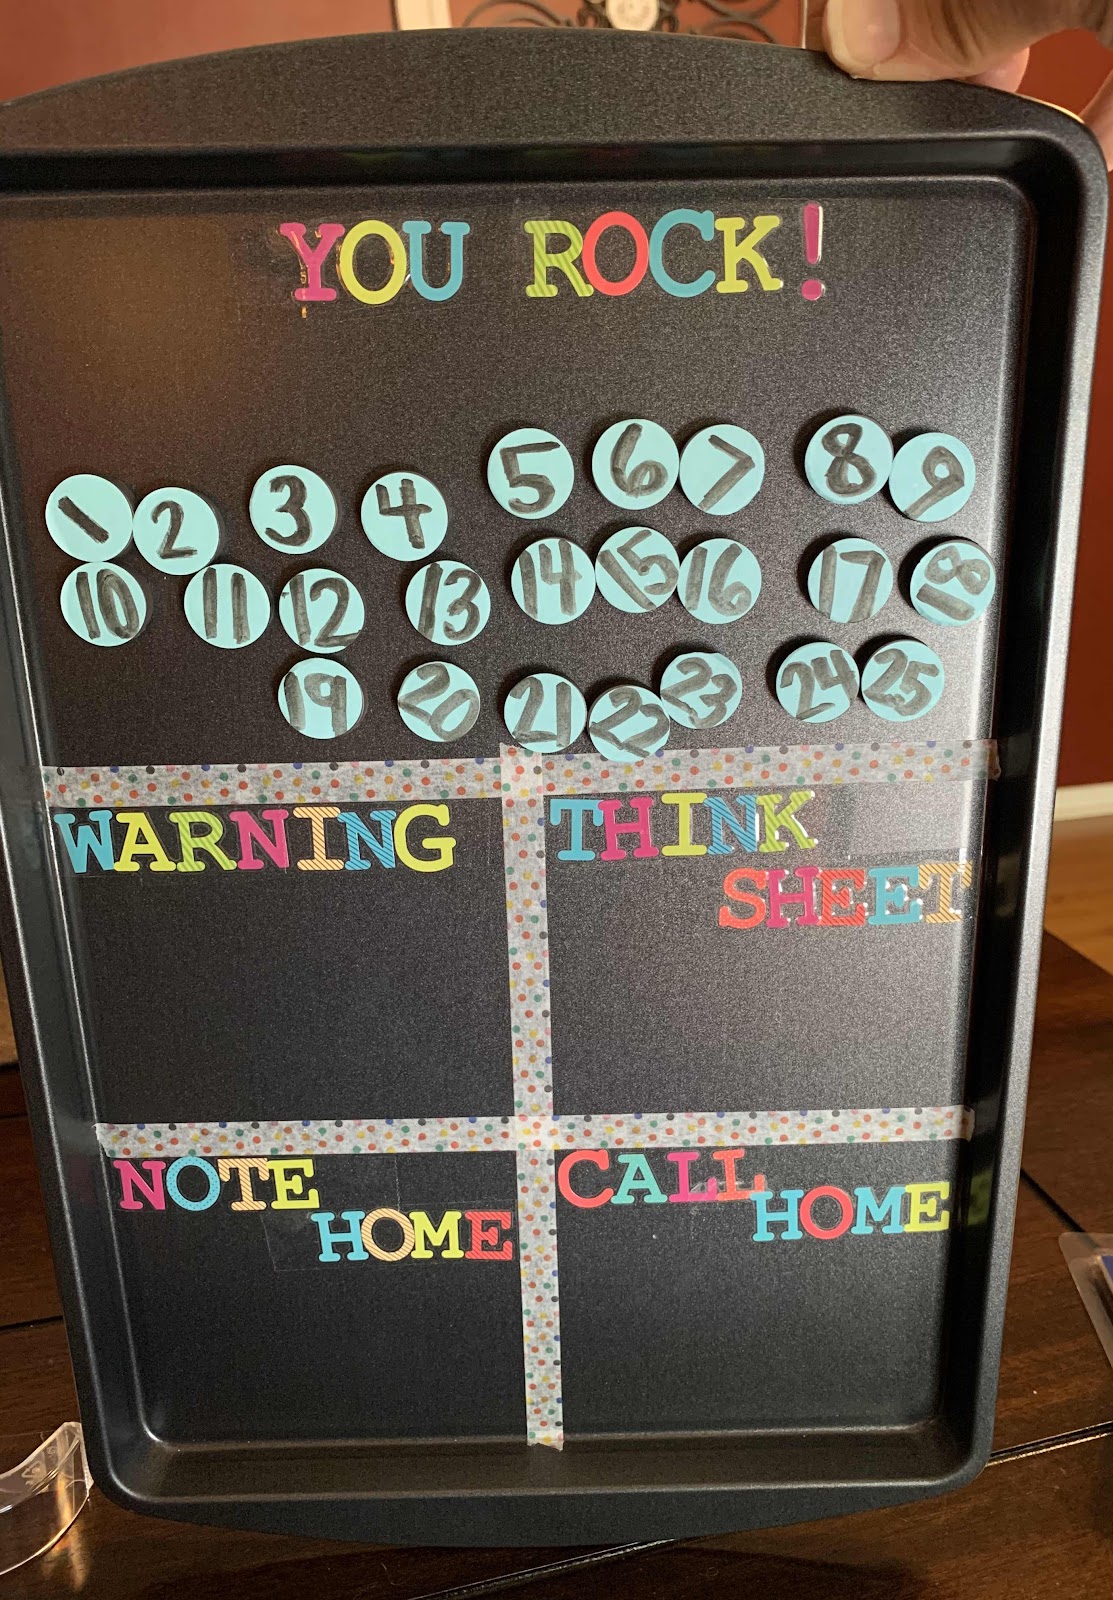 YOU ROCK!
1 2 3 4 5 6 7 8 9
10 11 12 13 14 15 16 17 18
19 20 21 22 23 24 25
WARNING
THINK
SHEET
NOTE
HOME
CALL
HOME